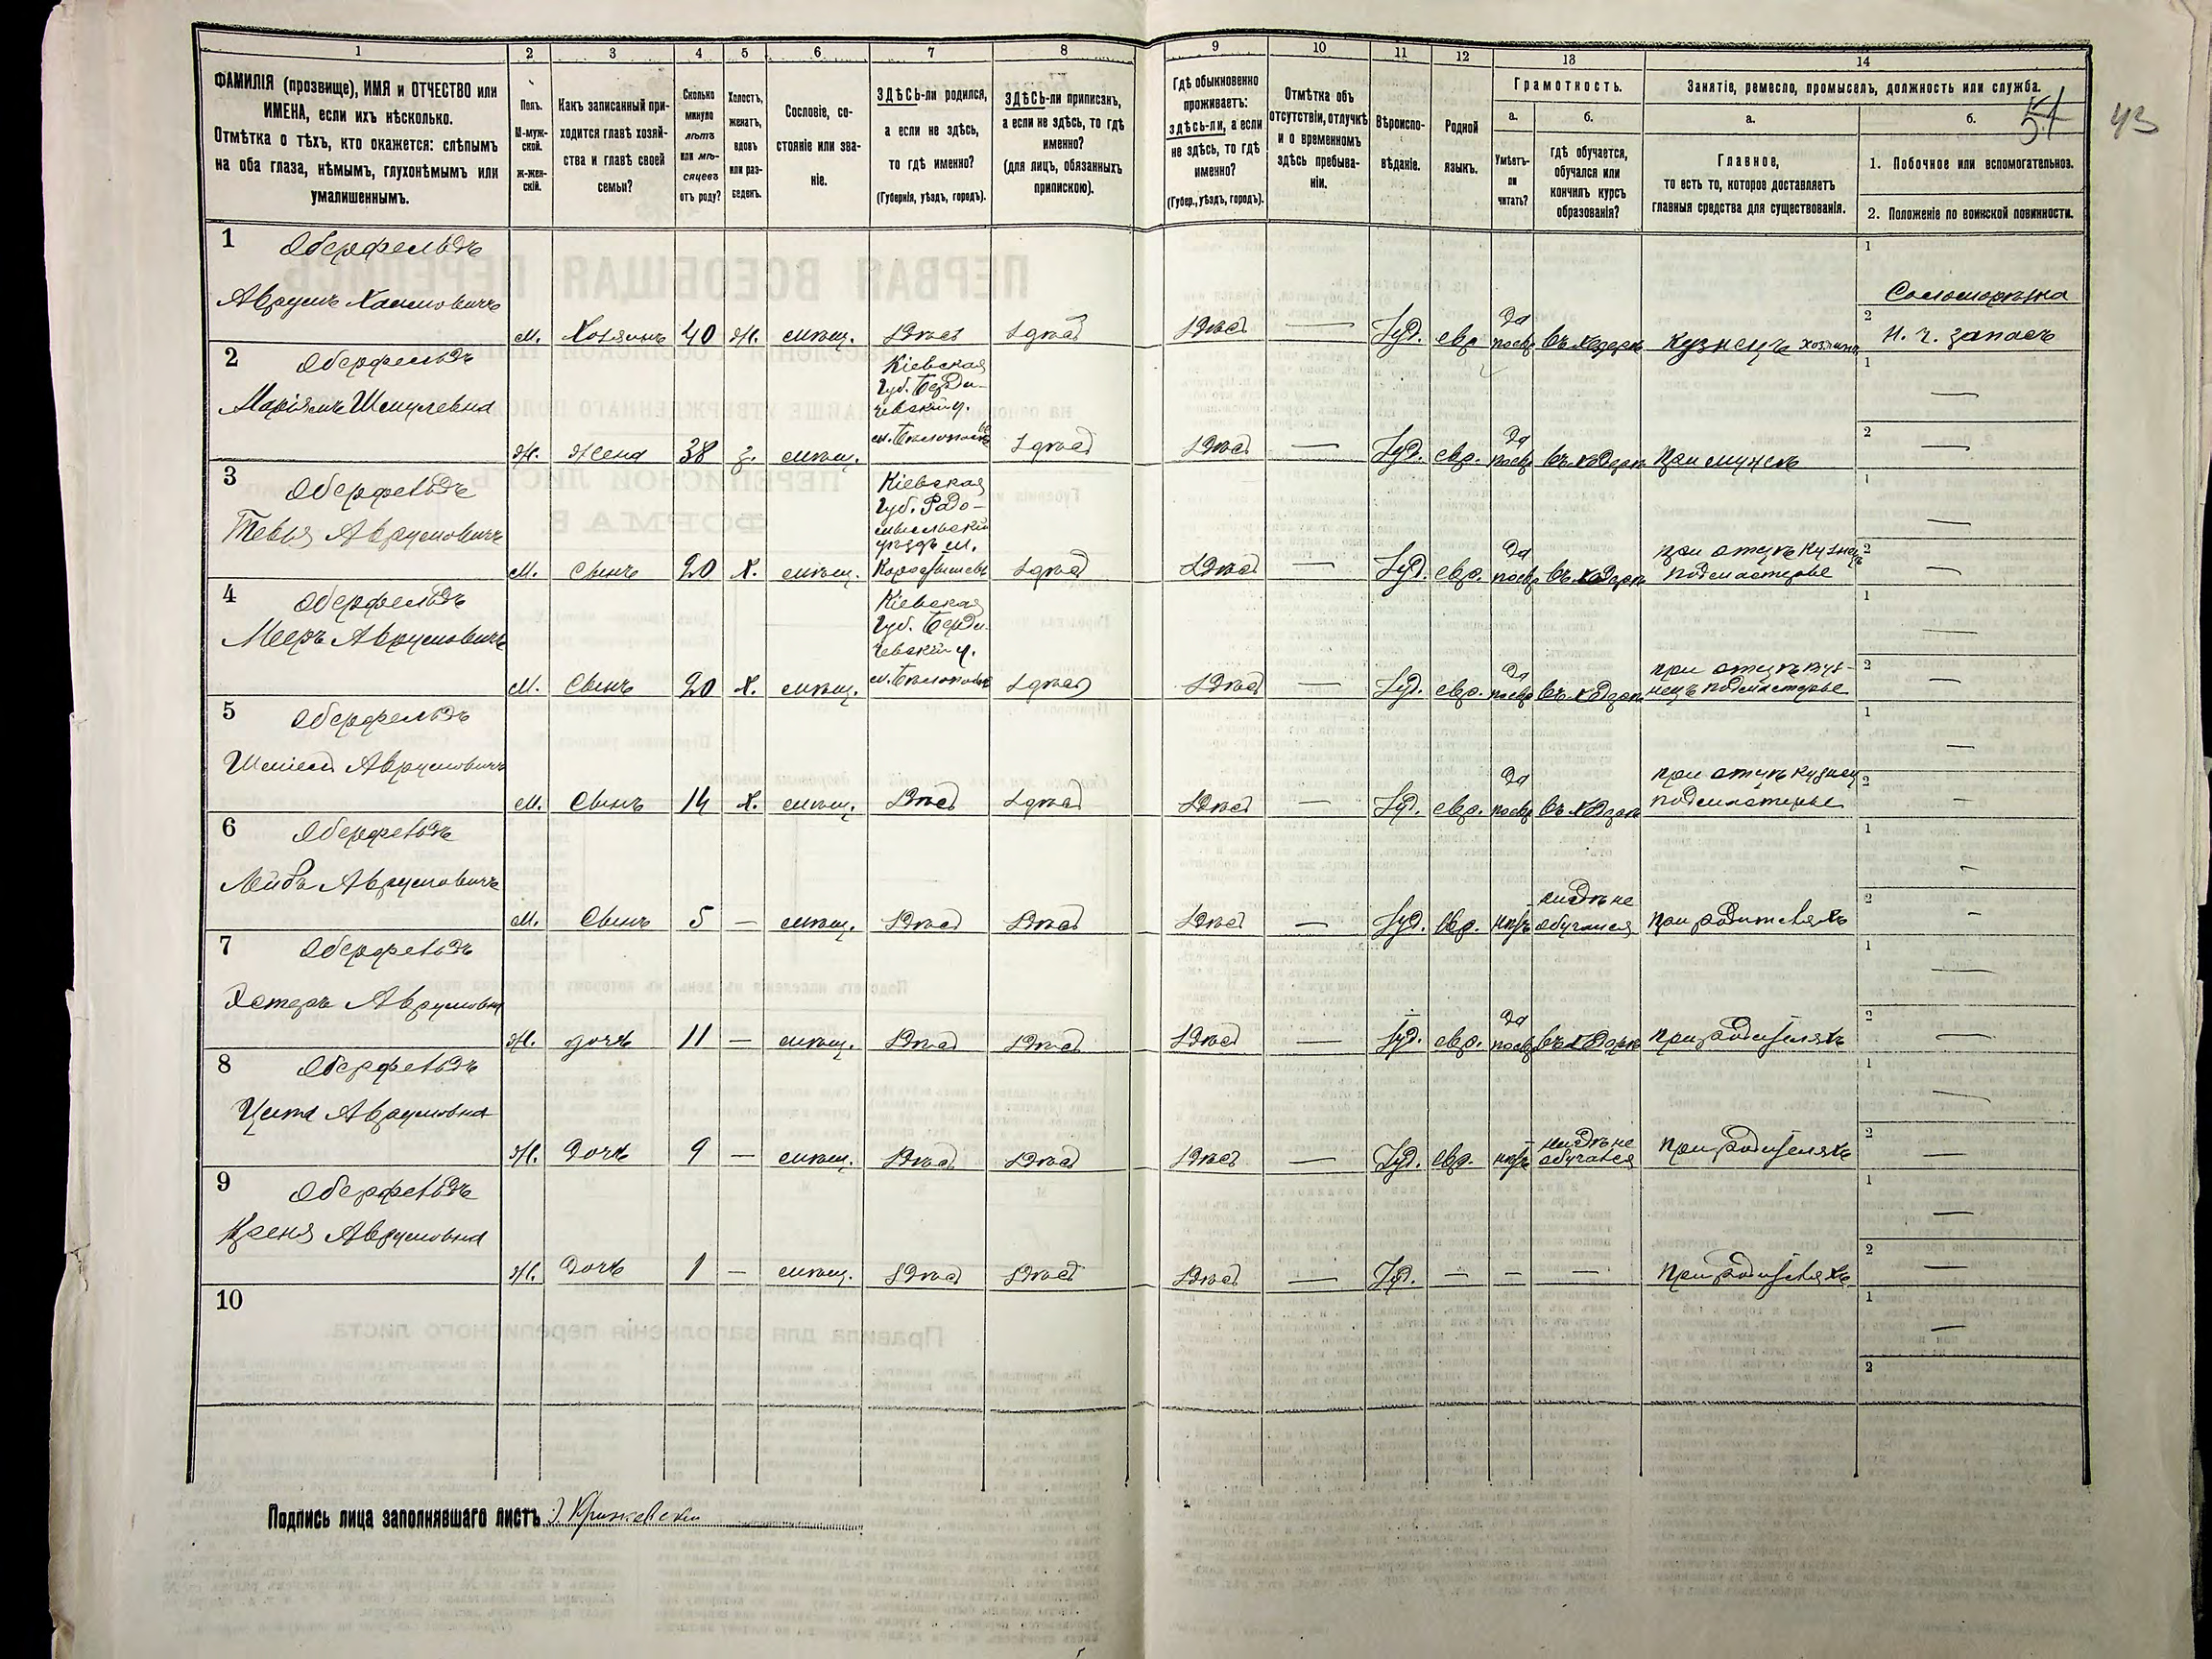 1 2 3 4 5 6 7 8 9 10 11 12 13 14
ФАМИЛІЯ (прозвище), ИМЯ и ОТЧЕСТВО или
ИМЕНА, если ихъ нѣсколько.
Отмѣтка о тѣхъ, кто окажется: слѣпымъ
на оба глаза, нѣмымъ, глухонѣмымъ или
умалишеннымъ.
Полъ.
М-муж-
ской.
Ж-жен-
скій.
Какъ записанный при-
ходится главѣ хозяй-
ства и главѣ своей
семьи?
Сколько
минуло
лѣтъ
или мѣ-
сяцевъ
отъ роду?
Холостъ,
женатъ,
вдовъ
или раз-
веденъ.
Сословіе, со-
стояніе или зва-
ніе.
ЗДѢСЬ-ли родился,
а если не здѣсь,
то гдѣ именно?
(Губернія, уѣздъ, городъ).
ЗДѢСЬ-ли приписанъ,
а если не здѣсь, то гдѣ
именно?
(для лицъ, обязанныхъ
припискою).
Гдѣ обыкновенно
проживаетъ:
здѣсь-ли, а если
не здѣсь, то гдѣ
именно?
(Губер., уѣздъ, городъ).
Отмѣтка объ
отсутствіи, отлучкѣ
и о временномъ
здѣсь пребыва-
ніи.
Вѣроиспо-
вѣданіе.
Родной
языкъ.
Грамотность.
а.
Умѣетъ-
ли
читать?
б.
гдѣ обучается,
обучался или
кончилъ курсъ
образованія?
Занятіе, ремесло, промыселъ, должность или служба.
а.
Главное,
то есть то, которое доставляетъ
главныя средства для существованія.
б.
1. Побочное или вспомогательное.
2. Положеніе по воинской повинности.
43
1 Оберфельдъ
Аврумъ Хаимовичъ
м. Хозяинъ 40 ж. мѣщ. Здѣсь Здѣсь Здѣсь — Іуд. евр. Да поевр въ хедерѣ кузнецъ хозяинъ
1
2 Н. ч. запасъ
2 Оберфельдъ
Маріямъ Шмулевна
ж. жена 38 з. мѣщ.
Кіевская
Губ. Берди-
чевскій у.
Здѣсь Здѣсь — Іуд. евр. Да поевр въ хедерѣ При мужѣ
1 —
2 —
3 Оберфельдъ
Тевья Аврумовичъ
м. Сынъ 20 х. мѣщ.
Кіевская
Губ. Радо-
мысльскій
уѣздъ м.
Коростышевъ
Здѣсь Здѣсь — Іуд. евр. Да поевр въ хедерѣ
при отцѣ кузнецъ
подмастерье
1 —
2 —
4 Оберфельдъ
Мееръ Аврумовичъ
м. Сынъ 20 х. мѣщ.
Кіевская
Губ. Берди-
чевскій у.
Здѣсь Здѣсь — Іуд. евр. Да поевр въ хедерѣ
при отцѣ куз-
нецъ подмастерье
1 —
2 —
5 Оберфельдъ
Аврумовичъ
м. Сынъ 14 х. мѣщ. Здѣсь Здѣсь Здѣсь — Іуд. евр. Да поевр въ хедерѣ
при отцѣ кузнец
подмастерье
1 —
2 —
6 Оберфельдъ
Лейбъ Аврумовичъ
м. Сынъ 5 — мѣщ. Здѣсь Здѣсь Здѣсь — Іуд. евр. нѣтъ
нигдѣ не
обучался
При родителяхъ
1 —
2 —
7 Оберфельдъ
Эстеръ Аврумовна
ж. дочь 11 — мѣщ. Здѣсь Здѣсь Здѣсь — Іуд. евр. Да поевр въ хедерѣ При родителяхъ
1 —
2 —
8 Оберфельдъ
Аврумовна
ж. Дочь 9 — мѣщ. Здѣсь Здѣсь Здѣсь — Іуд. евр. нѣтъ
нигдѣ не
обучался
При родителяхъ
1 —
2 —
9 Оберфельдъ
Аврумовна
ж. Дочь 1 — мѣщ. Здѣсь Здѣсь Здѣсь — Іуд. — — — При родителяхъ
1 —
2 —
10
1 —
2
Подпись лица заполнявшаго листъ